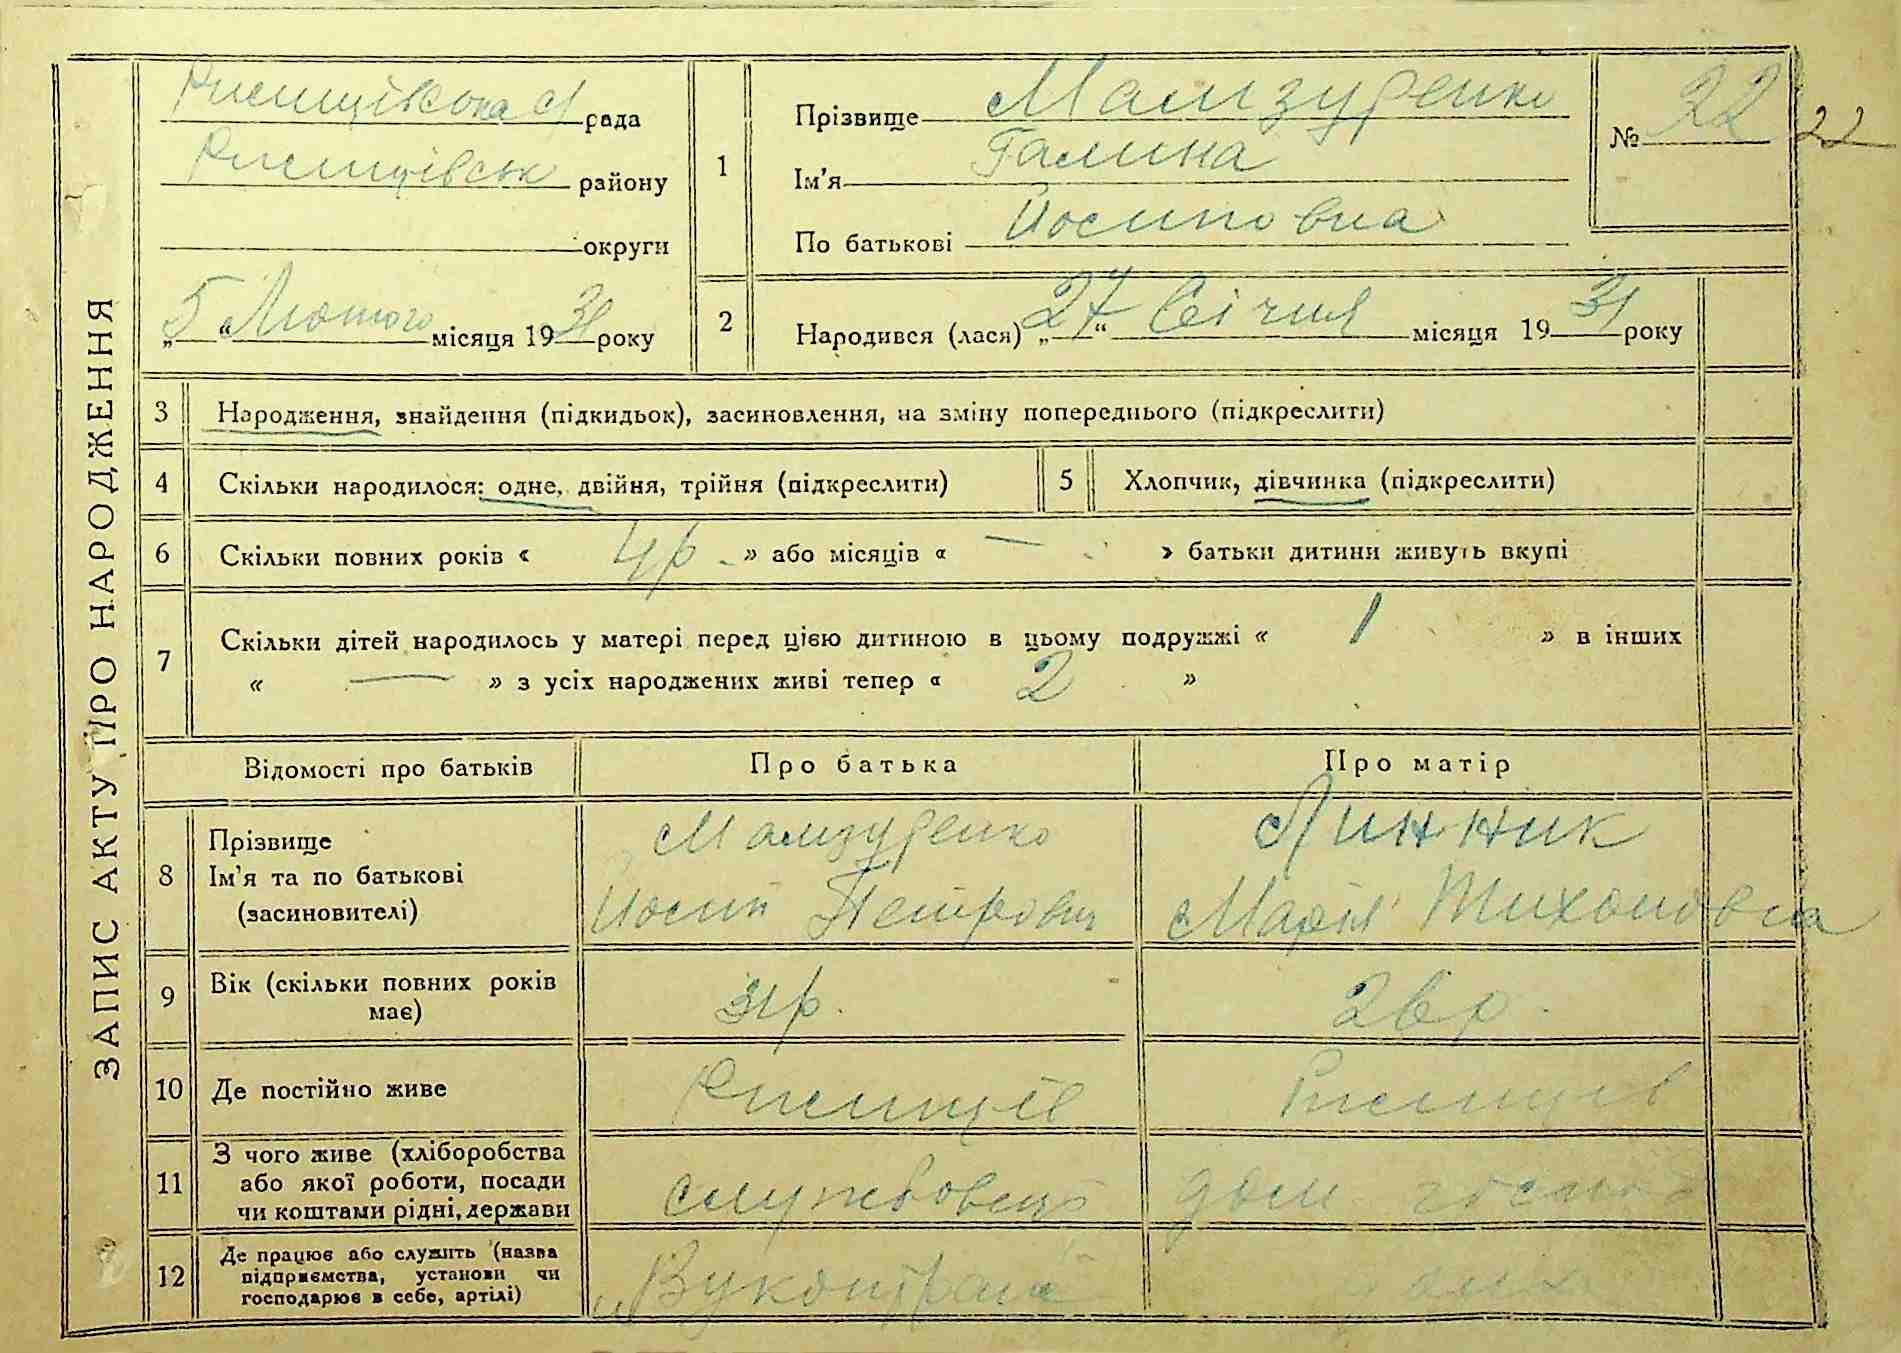 ЗАПИС АКТУ ПРО НАРОДЖЕННЯ
Ржищівська с/рада
Ржищівськ району
округи
„5“ Лютого місяця 1931 року
1
Прізвище Мамзуренко
Ім'я Галина
По батькові Йосиповна
№ 22 22
2
Народився (лася) „27“ Січня місяця 1931 року
3 Народження, знайдення (підкидьок), засиновлення, на зміну попереднього (підкреслити)
4 Скільки народилося: одне, двійня, трійня (підкреслити) 5 Хлопчик, дівчинка (підкреслити)
6 Скільки повних років « 4 р. » або місяців « — » батьки дитини живуть вкупі
7 Скільки дітей народилось у матері перед цією дитиною в цьому подружжі « 1 » в інших
« — » з усіх народжених живі тепер « 2 »
Відомості про батьків Про батька Про матір
8 Прізвище Мамзуренко Линник
Ім'я та по батькові Йосип Петрович Марія Тихоновна
(засиновителі)
9 Вік (скільки повних років 31р. 26 р.
має)
10 Де постійно живе Ржищів Ржищів
11 З чого живе (хліборобства
або якої роботи, посади службовець дом
чи коштами рідні, держави
12 Де працює або служить (назва
підприємства, установи чи
господарює в себе, артілі)